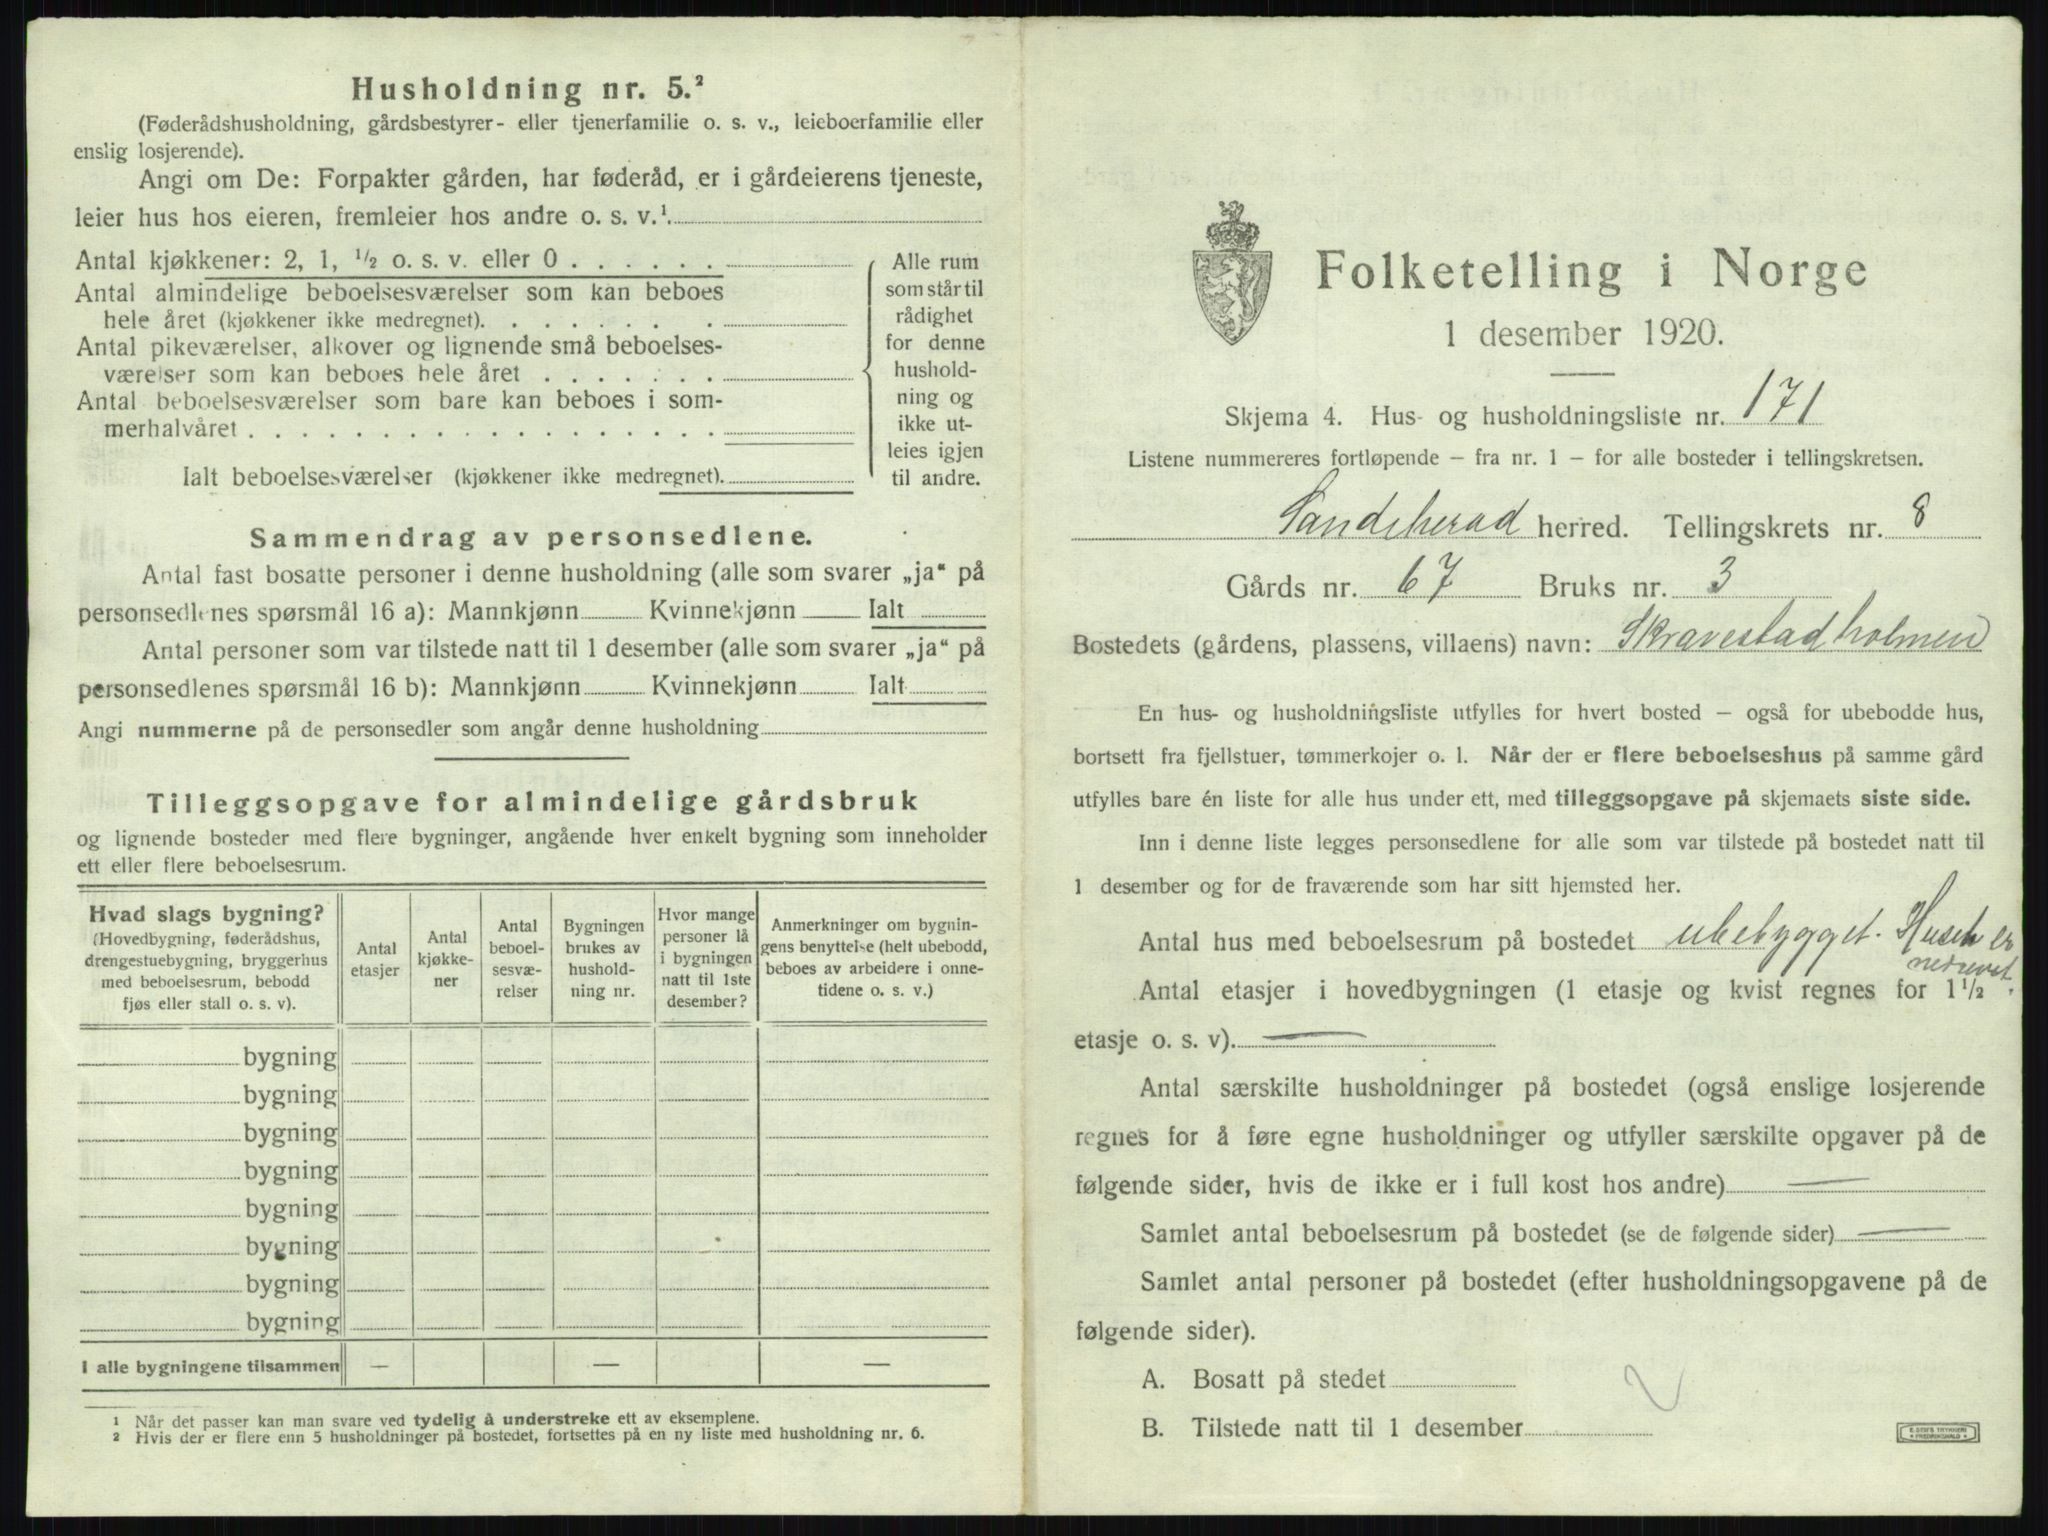 Husholdning nr. 5.²
(Føderådshusholdning, gårdsbestyrer- eller tjenerfamilie o. s. v., leieboerfamilie eller
enslig losjerende).
Angi om De: Forpakter gården, har føderåd, er i gårdeierens tjeneste,
leier hus hos eieren, fremleier hos andre o. s. v.¹.
Antal kjøkkener: 2, 1, ½ o. s. v. eller 0 . . . . . .
Antal almindelige beboelsesværelser som kan beboes
hele året (kjøkkener ikke medregnet). . . . . . . .
Antal pikeværelser, alkover og lignende små beboelses-
værelser som kan beboes hele året . . . . . . .
Antal beboelsesværelser som bare kan beboes i som-
merhalvåret . . . . . . . . . . . . . . . . . . .
Ialt beboelsesværelser (kjøkkener ikke medregnet).
Alle rum
som står til
rådighet
for denne
hushold-
ning og
ikke ut-
leies igjen
til andre.
Sammendrag av personsedlene.
Antal fast bosatte personer i denne husholdning (alle som svarer „ja“ på
personsedlenes spørsmål 16 a): Mannkjønn Kvinnekjønn Ialt
Antal personer som var tilstede natt til 1 desember (alle som svarer „ja“ på
personsedlenes spørsmål 16 b): Mannkjønn Kvinnekjønn Ialt
Angi nummerne på de personsedler som angår denne husholdning
Tilleggsopgave for almindelige gårdsbruk
og lignende bosteder med flere bygninger, angående hver enkelt bygning som inneholder
ett eller flere beboelsesrum.
Hvad slags bygning?
(Hovedbygning, føderådshus,
drengestuebygning, bryggerhus
med beboelsesrum, bebodd
fjøs eller stall o. s. v).
Antal
etasjer
Antal
kjøkke-
ner
Antal
beboel-
sesvæ-
relser
Bygningen
brukes av
hushold-
ning nr.
Hvor mange
personer lå
i bygningen
natt til 1ste
desember?
Anmerkninger om bygnin-
gens benyttelse (helt ubebodd,
beboes av arbeidere i onne-
tidene o. s. v.)
bygning
bygning
bygning
bygning
bygning
bygning
bygning
bygning
I alle bygningene tilsammen — — —
¹ Når det passer kan man svare ved tydelig å understreke ett av eksemplene.
² Hvis der er flere enn 5 husholdninger på bostedet, fortsettes på en ny liste med husholdning nr. 6.
Folketelling i Norge
1 desember 1920.
Skjema 4. Hus- og husholdningsliste nr. 171
Listene nummereres fortløpende – fra nr. 1 – for alle bosteder i tellingskretsen.
Sandeherad herred. Tellingskrets nr. 8
Gårds nr. 67 Bruks nr. 3
Bostedets (gårdens, plassens, villaens) navn: Skravestadholmen
En hus- og husholdningsliste utfylles for hvert bosted – også for ubebodde hus,
bortsett fra fjellstuer, tømmerkojer o. l. Når der er flere beboelseshus på samme gård
utfylles bare én liste for alle hus under ett, med tilleggsopgave på skjemaets siste side.
Inn i denne liste legges personsedlene for alle som var tilstede på bostedet natt til
1 desember og for de fraværende som har sitt hjemsted her.
Antal hus med beboelsesrum på bostedet ubebygget. Huset er
nedrevet.
Antal etasjer i hovedbygningen (1 etasje og kvist regnes for 1½
etasje o. s. v). —
Antal særskilte husholdninger på bostedet (også enslige losjerende
regnes for å føre egne husholdninger og utfyller særskilte opgaver på de
følgende sider, hvis de ikke er i full kost hos andre) —
Samlet antal beboelsesrum på bostedet (se de følgende sider) —
Samlet antal personer på bostedet (efter husholdningsopgavene på de
følgende sider).
A. Bosatt på stedet
B. Tilstede natt til 1 desember